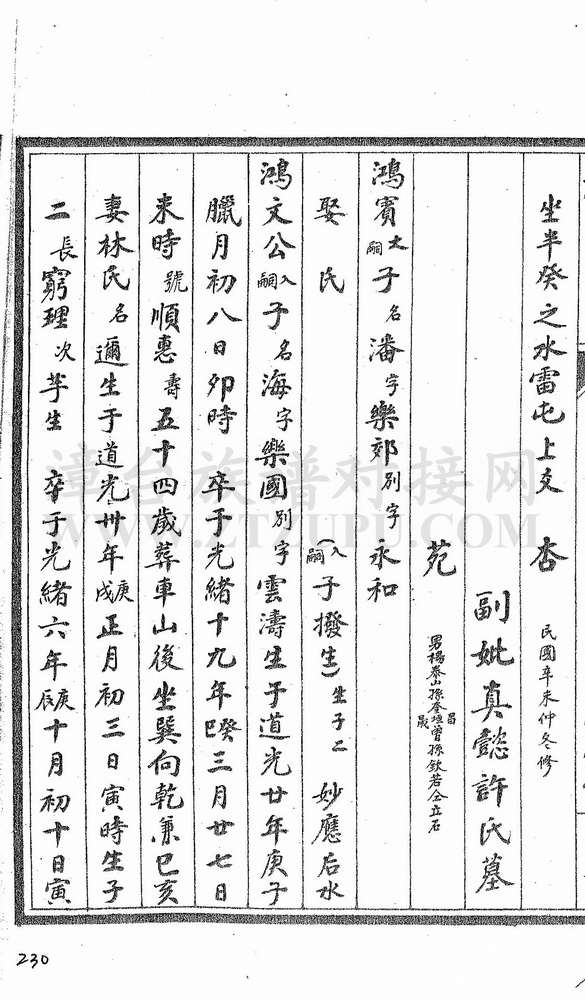 坐半癸之水雷屯上爻 杏 民國辛未仲冬修
副妣真懿許氏墓
苑 男楊泰山孫奎垣昌晟曾孫欽若仝立石
鴻賓大嗣子名潘字樂郊別字永和
娶 氏 (入嗣子撥生)生子二 妙應后水
鴻文公入嗣子名海字樂國別字雲濤生于道光廿年庚子
臘月初八日卯時 卒于光緒十九年癸巳三月廿七日
来時號順惠壽五十四歲葬車山後坐巽向乾兼巳亥
妻林氏名邇生于道光卅年庚戌正月初三日寅時生子
二長窮理次芋生 卒于光緒六年庚辰十月初十日寅
230
漳台族谱对接网
WWW.ZTZUPU.COM